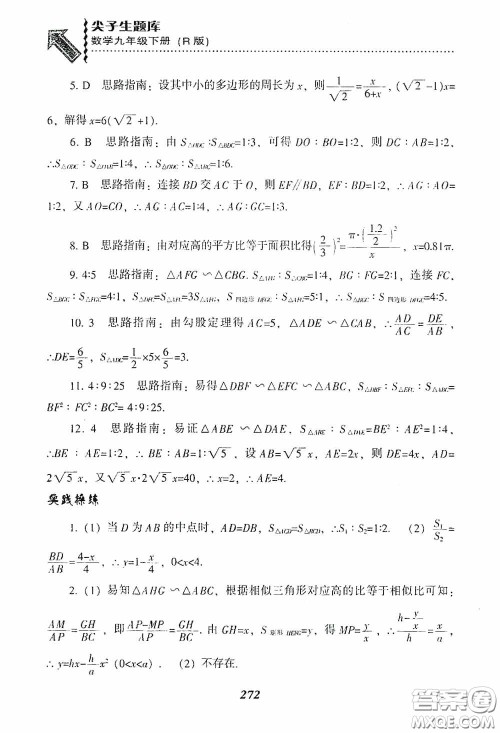 尖子生题库
数学九年级下册 (R版)
5. D 思路指南：设其中小的多边形的周长为 x，则 1/√2 = x/(6+x)，(√2-1)x=
6，解得 x=6(√2+1).
6. B 思路指南：由 S△ODC∶S△BDC=1∶3，可得 DO∶BO=1∶2，则 DC∶AB=1∶2，
∴S△ODC∶S△OAB=1∶4，∴S△ODC∶S△ABC=1∶6.
7. B 思路指南：连接 BD 交 AC 于 O，则 EF∥BD，EF∶BD=1∶2，∴AG∶AO=
1∶2，又 AO=CO，∴AG∶AC=1∶4，∴AG∶GC=1∶3.
8. B 思路指南：由对应高的平方比等于面积比得(2/3)²= π·(1.2/2)²/x，x=0.81π.
9. 4∶5 思路指南：△AFG∽△CBG. S△AFG∶S△CBG=1∶4，BG∶FG=2∶1，连接 FC，
10. 3 思路指南：由勾股定理得 AC=5，△ADE∽△CAB，∴AD/AC = DE/AB，
∴DE=6/5，S△ADC=1/2×5×6/5=3.
11. 4∶9∶25 思路指南：易得△DBF∽△EFC∽△ABC，S△DBF∶S△EFC∶S△ABC=
BF²∶FC²∶BC²= 4∶9∶25.
12. 4 思路指南：易证△ABE∽△DAE，S△ABE∶S△DAE=BE²∶AE²=1∶4，
∴BE∶AE=1∶2，∴BE∶AB=1∶√5，设 AB=√5x，则 BE=x，AE=2x，AD=
2√5x，又√5x·2√5x=40，∴x=2，∴AE=4.
实践操练
1. (1) 当 D 为 AB 的中点时，AD=DB，S△ACD=S△BCD，∴S₁∶S=1∶2. (2) S₁/S₂=
BD/AB = (4-x)/4，∴y=1-x/4，0<x<4.
2. (1) 易知△AHG∽△ABC，根据相似三角形对应高的比等于相似比可知：
AM/AP = GH/BC，即 (AP-MP)/AP = GH/BC. 由 GH=x，S矩形HENG=y，得 MP=y/x，∴(h-y/x)/h = x/a，
∴y=hx-(h/a)x² (0<x<a). (2) 不存在.
272